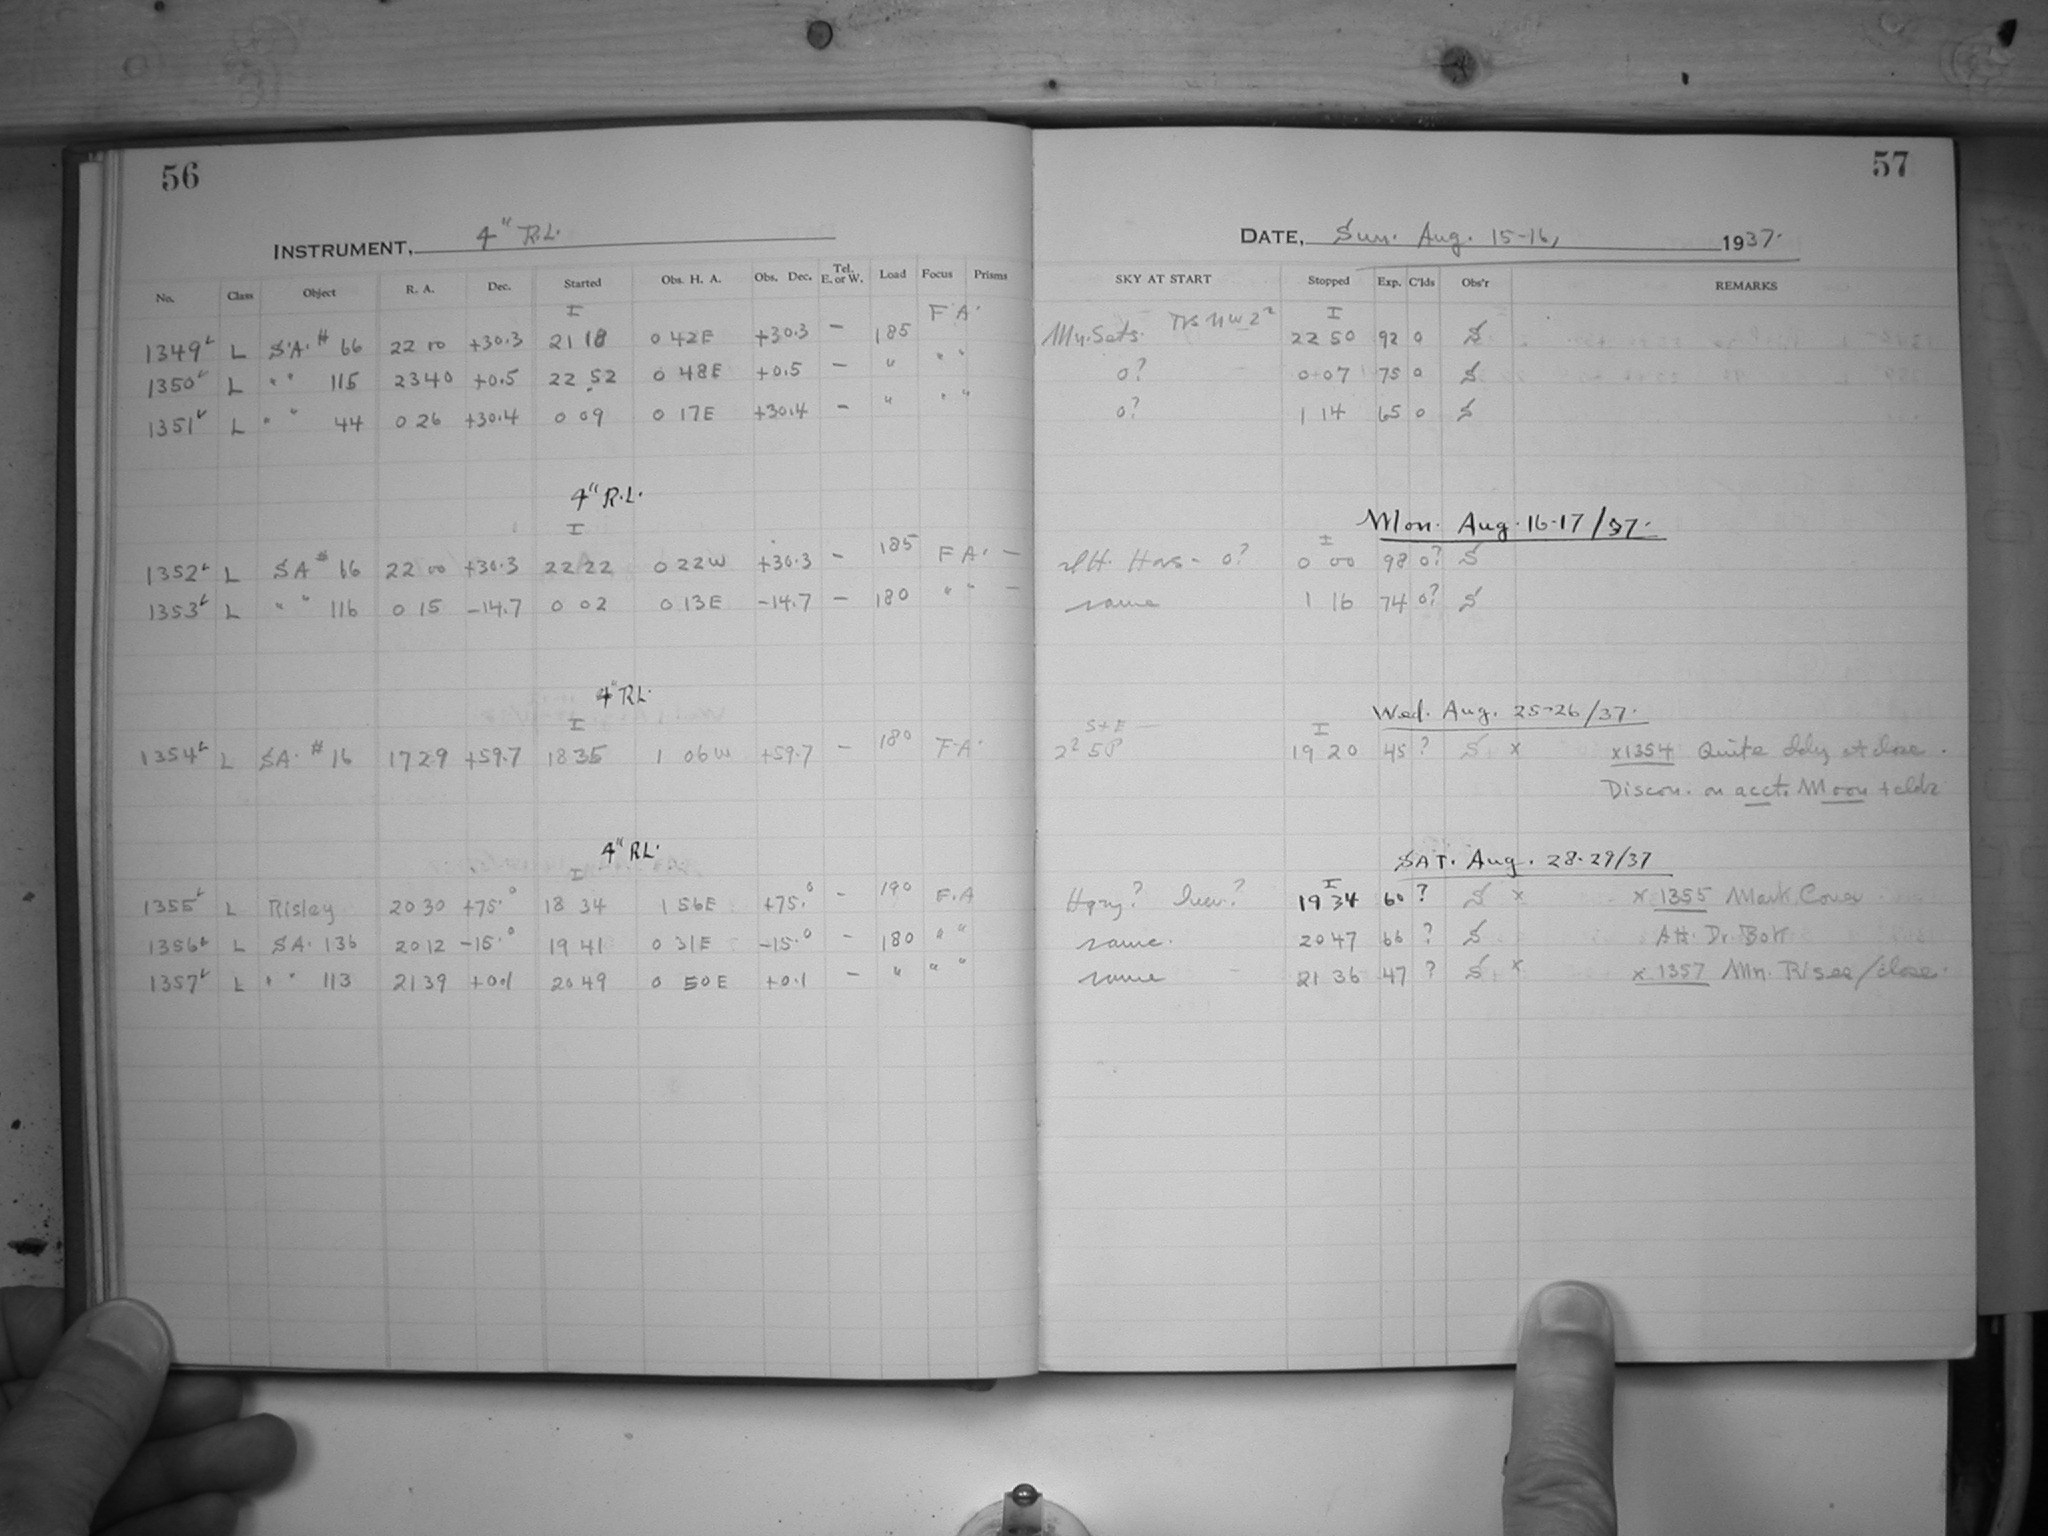 56
INSTRUMENT, 4" R.L.
No. Class Object R. A. Dec. Started Obs. H. A. Obs. Dec. Tel. E. or W. Load Focus Prisms
I F A.
1349 L S.A. # 66 22 00 +30.3 21 18 0 42E +30.3 – 185
1350 L " " 115 23 40 +0.5 22 52 0 48E +0.5 – " " "
1351 L " " 44 0 26 +30.4 0 09 0 17E +30.4 – " " "
4" R.L.
I
1352 L SA # 66 22 00 +30.3 22 22 0 22W +30.3 – 185 F A. –
1353 L " " 116 0 15 –14.7 0 02 0 13E –14.7 – 180 " " –
4" RL.
I
1354 L SA. # 16 17 29 +59.7 18 35 1 06W +59.7 – 180 F.A.
4" RL.
I
1355 L Risley 20 30 +75.° 18 34 1 56E +75.° – 190 F.A
1356 L SA. 136 20 12 –15.° 19 41 0 31E –15.° – 180 " "
1357 L " " 113 21 39 +0.1 20 49 0 50E +0.1 – " " "
57
DATE, Sun. Aug. 15-16, 1937.
SKY AT START Stopped Exp. C'lds Obs'r REMARKS
I
Mn. Sets. 22 50 92 0 S
0? 0 07 75 0 S
0? 1 14 65 0 S
Mon. Aug. 16-17/37.
I
0? 0 00 98 0? S
same 1 16 74 0? S
Wed. Aug. 25-26/37.
S+E I
19 20 45 ? S x x1354 Quite cldy at close.
Discon. on acct. Moon + clds
SAT. Aug. 28-29/37
I
Hazy? 19 34 60 ? S x x 1355 Mark Cover
same. 20 47 66 ? S Att. Dr. Bok
same 21 36 47 ? S x x 1357 Mn. Rises/close.